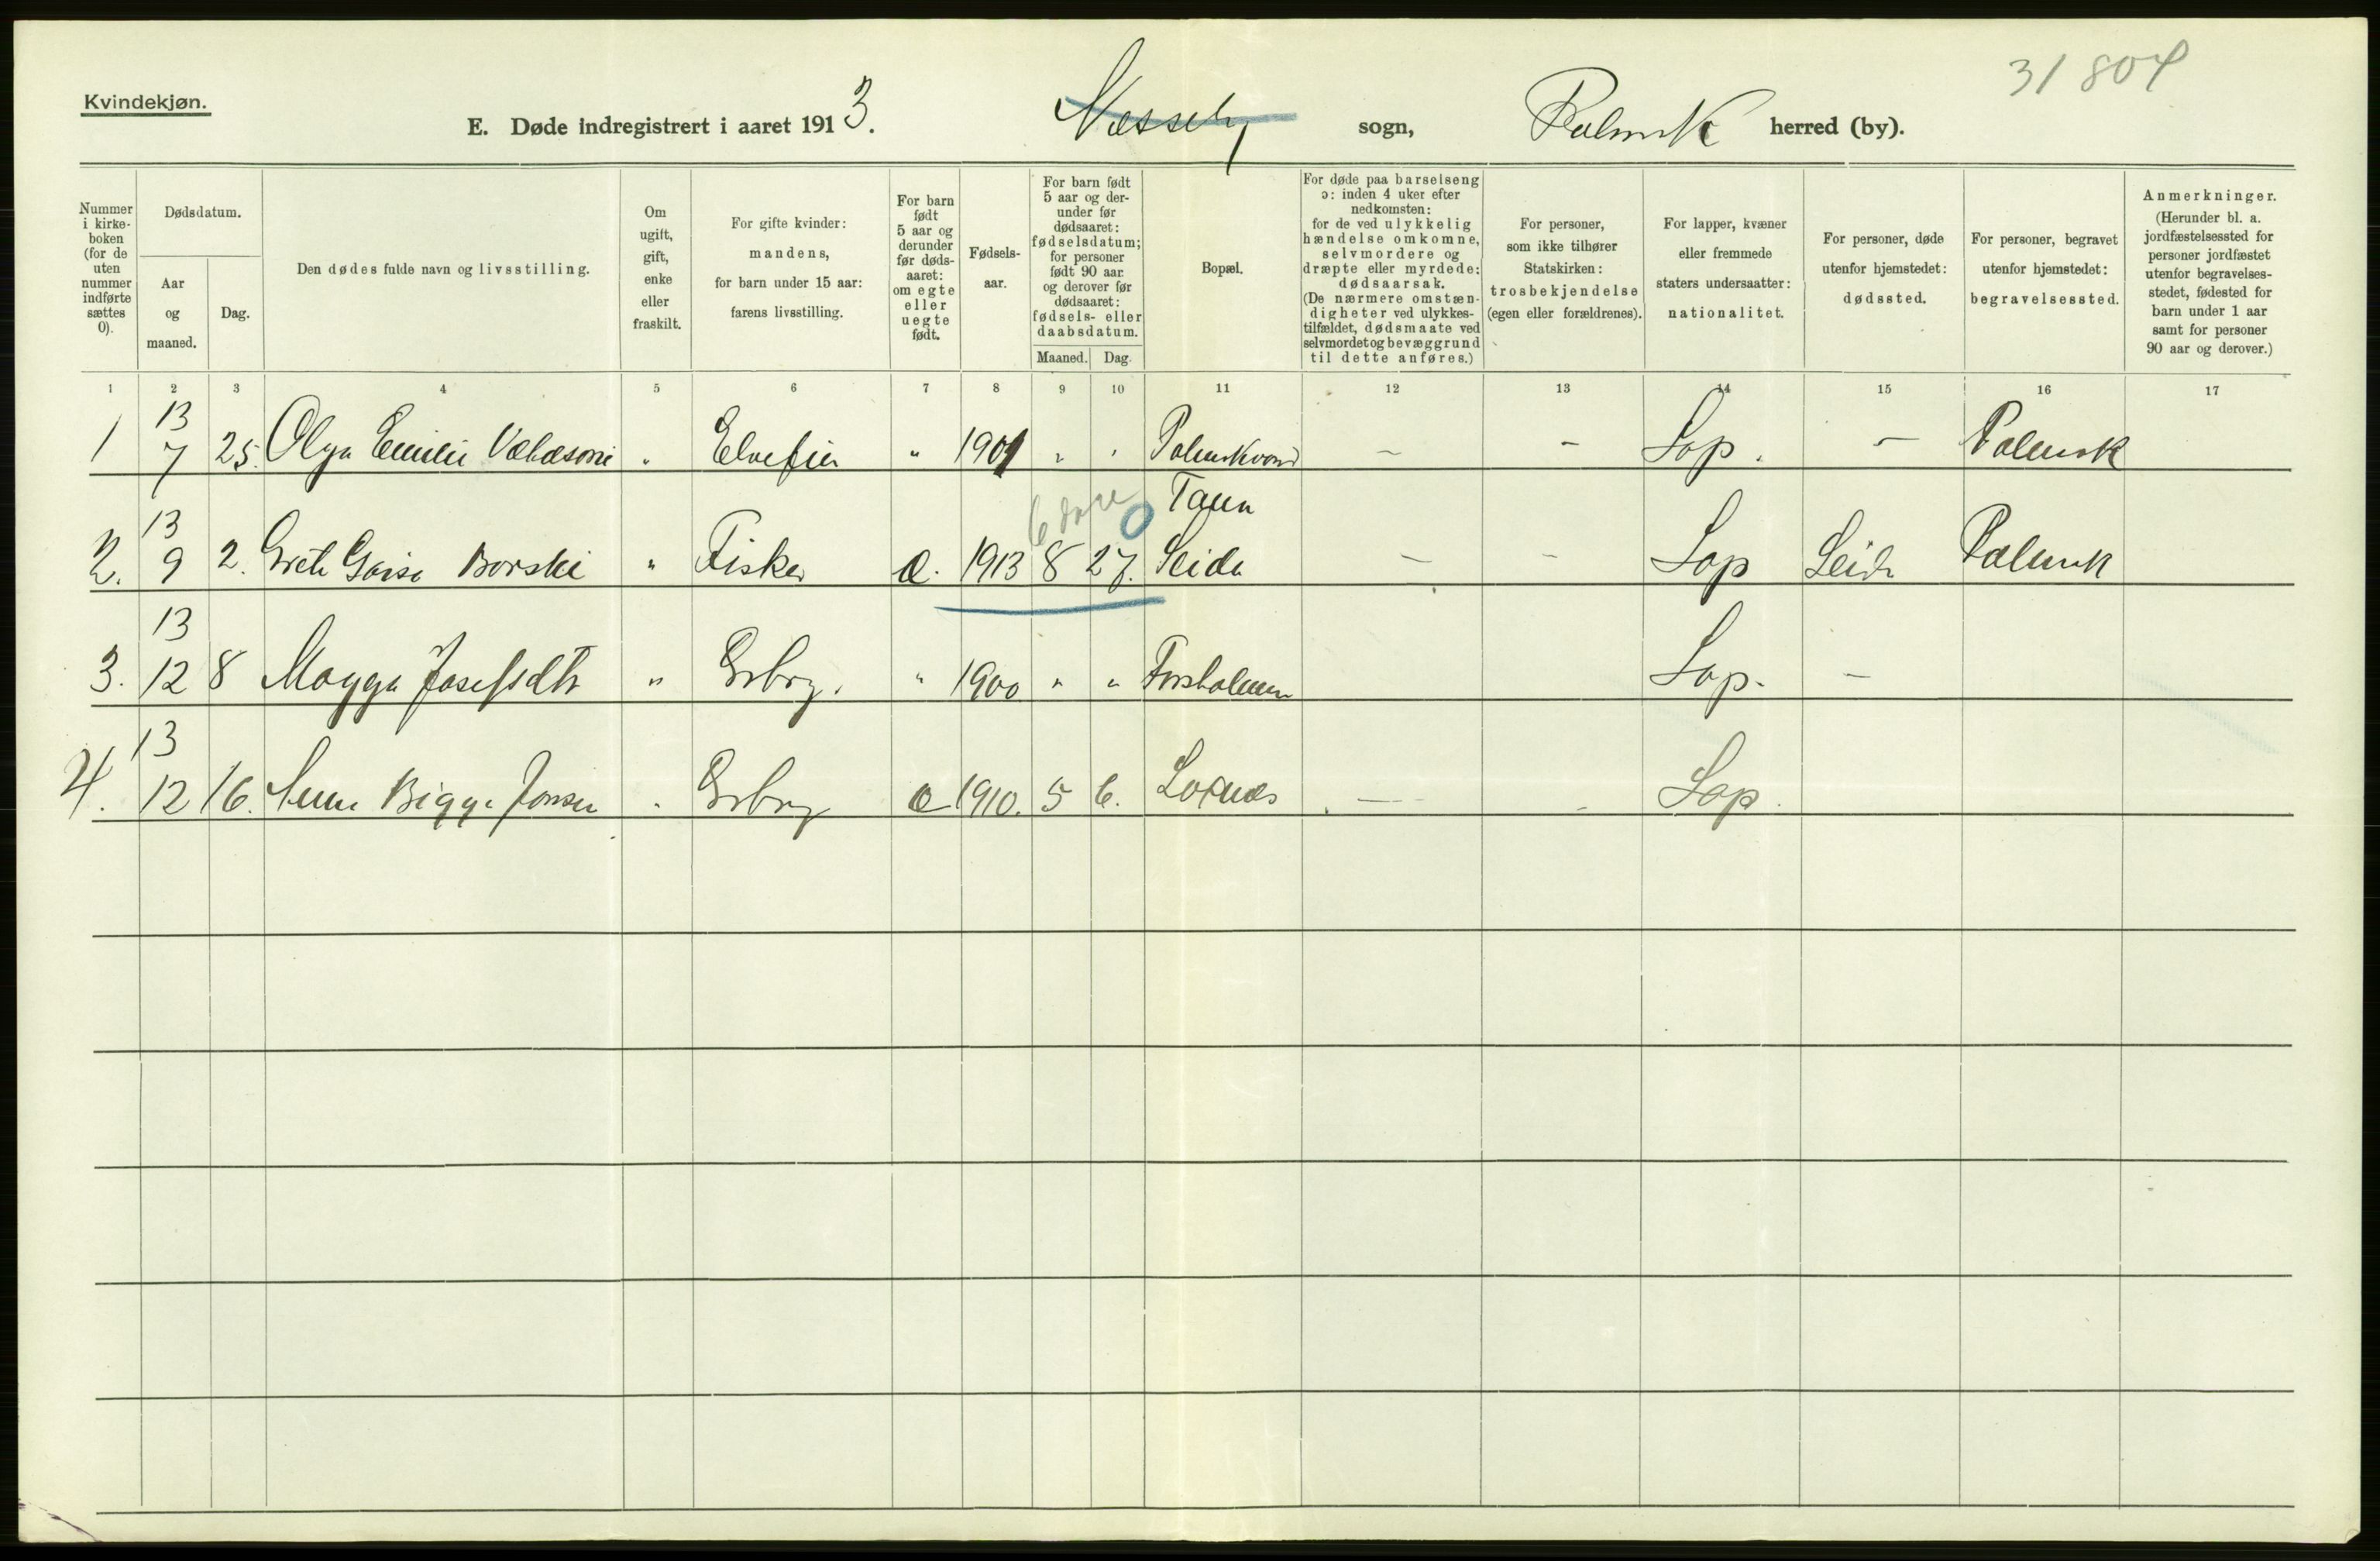 31 804
Kvindekjøn.
E. Døde indregistrert i aaret 1913. Nesseby sogn, Polmak herred (by).
Nummer i kirkeboken (for de uten nummer indførte sættes 0).
Dødsdatum.
Aar og maaned.
Dag.
Den dødes fulde navn og livsstilling.
Om ugift, gift, enke eller fraskilt.
For gifte kvinder: mandens, for barn under 15 aar: farens livsstilling.
For barn født 5 aar og derunder før dødsaaret: om egte eller uegte født.
Fødselsaar.
For barn født 5 aar og derunder før dødsaaret: fødselsdatum; for personer født 90 aar og derover før dødsaaret: fødsels- eller daabsdatum.
Maaned. Dag.
Bopæl.
For døde paa barselseng ɔ: inden 4 uker efter nedkomsten: for de ved ulykkelig hændelse omkomne, selvmordere og dræpte eller myrdede: dødsaarsak. (De nærmere omstændigheter ved ulykkestilfældet, dødsmaate ved selvmordet og bevæggrund til dette anføres.)
For personer, som ikke tilhører Statskirken: trosbekjendelse (egen eller forældrenes).
For lapper, kvæner eller fremmede staters undersaatter: nationalitet.
For personer, døde utenfor hjemstedet: dødssted.
For personer, begravet utenfor hjemstedet: begravelsessted.
Anmerkninger. (Herunder bl. a. jordfæstelsessted for personer jordfæstet utenfor begravelsesstedet, fødested for barn under 1 aar samt for personer 90 aar og derover.)
1 2 3 4 5 6 7 8 9 10 11 12 13 14 15 16 17
13
1 7 25. Olga Emilie " " 190 " " — — Lap. — Polmak
6 dage 0 Tana
13
2. 9 2. Borski " Fisker 1913 8 27. Seida — — Lap Seida Polmak
13
3. 12 8 Magga Josefsdtr " Grbrg. " 1900 " " Forsholmen Lap. —
13
4. 12 16. Bigga Jonsen " Grbrg 1910. 5 6. — Lap.